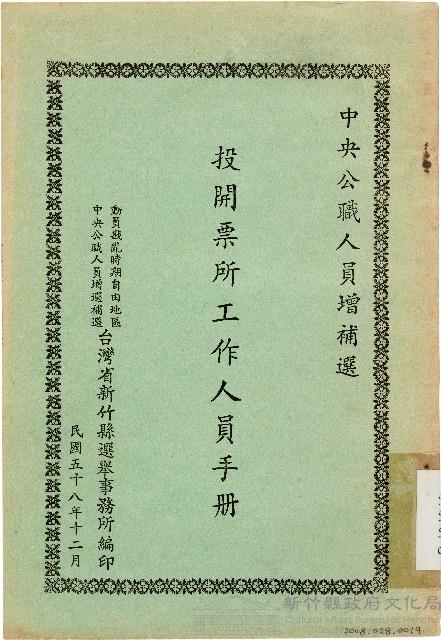 中央公職人員增補選
投開票所工作人員手册
動員戡亂時期自由地區
中央公職人員增選補選
台灣省新竹縣選舉事務所編印
民國五十八年十二月
新竹縣政府文化局
Cultural Affairs Bureau of Hsinchu
2008.028.0019